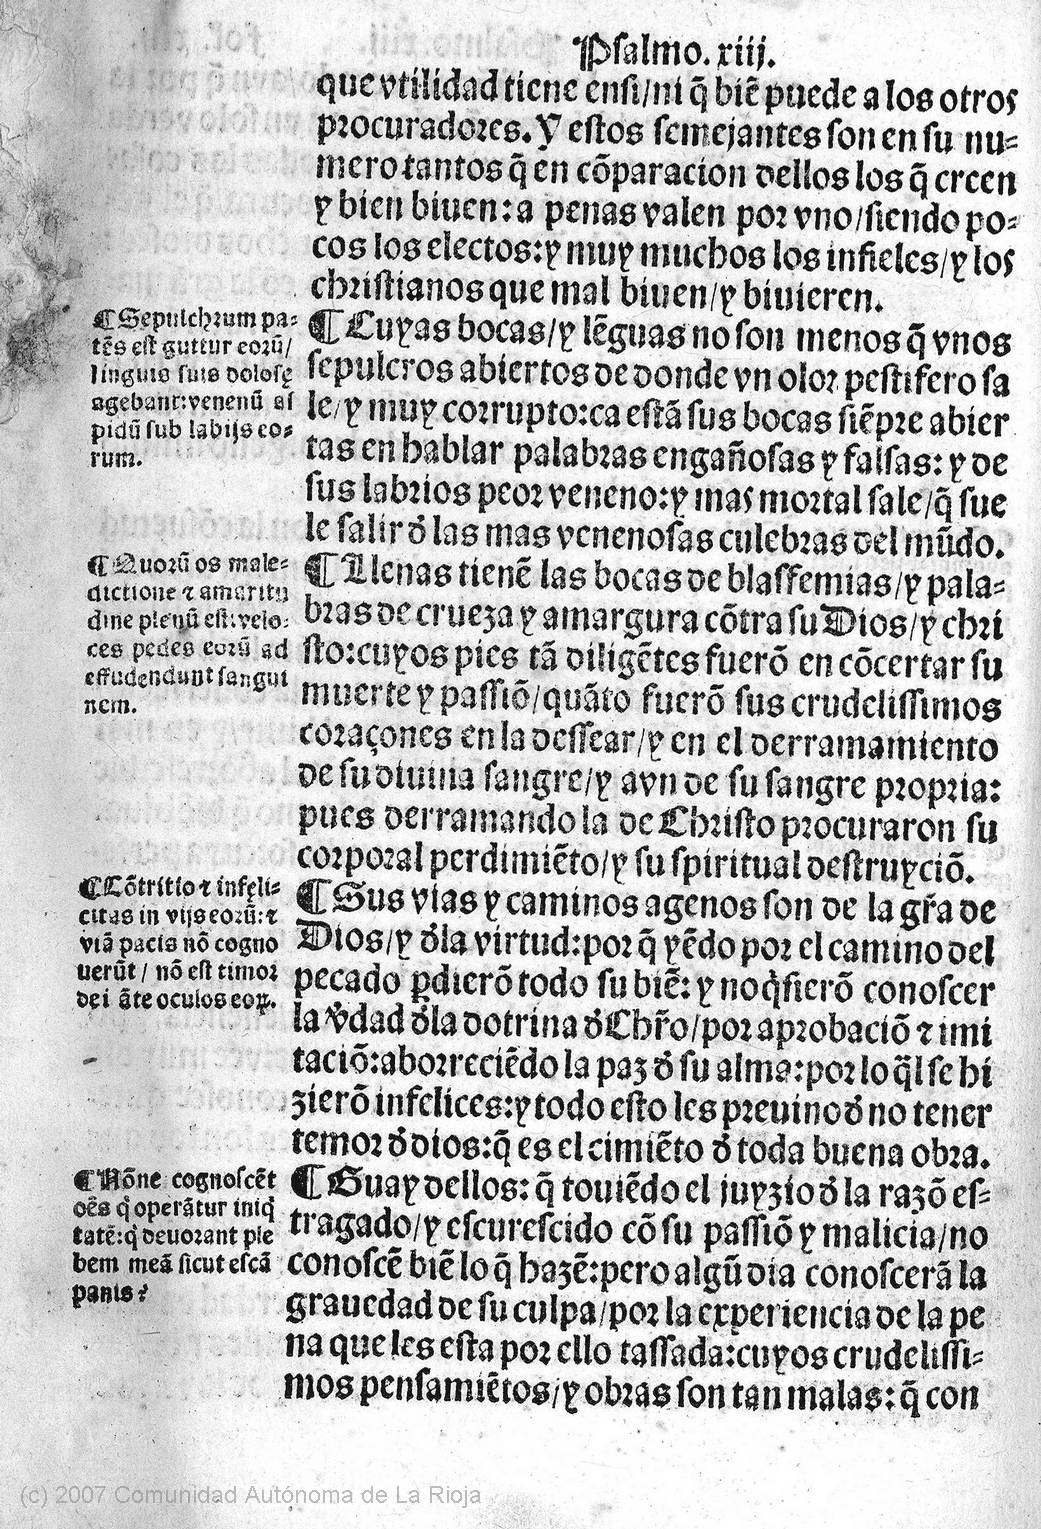 Psalmo. xiij.
que vtilidad tiene ensi/ni q̃ biẽ puede a los otros
procuradores. Y estos semejantes son en su nu⸗
mero tantos q̃ en cõparacion dellos los q̃ creen
y bien biuen: a penas valen por vno/siendo po⸗
cos los electos: y muy muchos los infieles/y los
christianos que mal biuen/y biuieren.
¶ Sepulchrum pa⸗
tẽs est guttur eorũ/
linguis suis dolose
agebant: venenũ as
pidũ sub labijs eo⸗
rum.
¶ Cuyas bocas/y lẽguas no son menos q̃ vnos
sepulcros abiertos de donde vn olor pestifero sa
le/y muy corrupto: ca estã sus bocas siẽpre abier
tas en hablar palabras engañosas y falsas: y de
sus labrios peor veneno: y mas mortal sale/q̃ sue
le salir d̓ las mas venenosas culebras del mũdo.
¶ Quorũ os male⸗
dictione ⁊ amaritu
dine plenũ est: velo⸗
ces pedes eorũ ad
effudendunt sangui
nem.
¶ Llenas tienẽ las bocas de blasfemias/y pala⸗
bras de crueza y amargura cõtra su Dios/y chri
sto: cuyos pies tã diligẽtes fuerõ en cõcertar su
muerte y passiõ/quãto fuerõ sus crudelissimos
coraçones en la dessear/y en el derramamiento
de su diuina sangre/y avn de su sangre propria:
pues derramando la de Christo procuraron su
corporal perdimiẽto/y su spiritual destruyciõ.
¶ Cõtritio ⁊ infęli⸗
citas in vijs eorũ: ⁊
viã pacis nõ cogno
uerũt / nõ est timor
dei ãte oculos eoꝝ.
¶ Sus vias y caminos agenos son de la gr̃a de
Dios/y d̓la virtud: por q̃ yẽdo por el camino del
pecado ꝑdierõ todo su biẽ: y no q̓sierõ conoscer
la v̓dad d̓la dotrina d̓ Chr̃o/por aprobaciõ ⁊ imi
taciõ: aborreciẽdo la paz d̓ su alma: por lo q̃l se hi
zierõ infelices: y todo esto les preuino d̓ no tener
temor d̓ dios: q̃ es el cimiẽto d̓ toda buena obra.
¶ Nõne cognoscẽt
oẽs q̓ operãtur iniq̓
tatẽ: q̓ deuorant ple
bem meã sicut escã
panis?
¶ Guay dellos: q̃ touiẽdo el juyzio d̓ la razõ es⸗
tragado/y escurescido cõ su passiõ y malicia/no
conoscẽ biẽ lo q̃ hazẽ: pero algũ dia conoscerã la
grauedad de su culpa/por la experiencia de la pe
na que les esta por ello tassada: cuyos crudelissi⸗
mos pensamiẽtos/y obras son tan malas: q̃ con
(c) 2007 Comunidad Autónoma de La Rioja